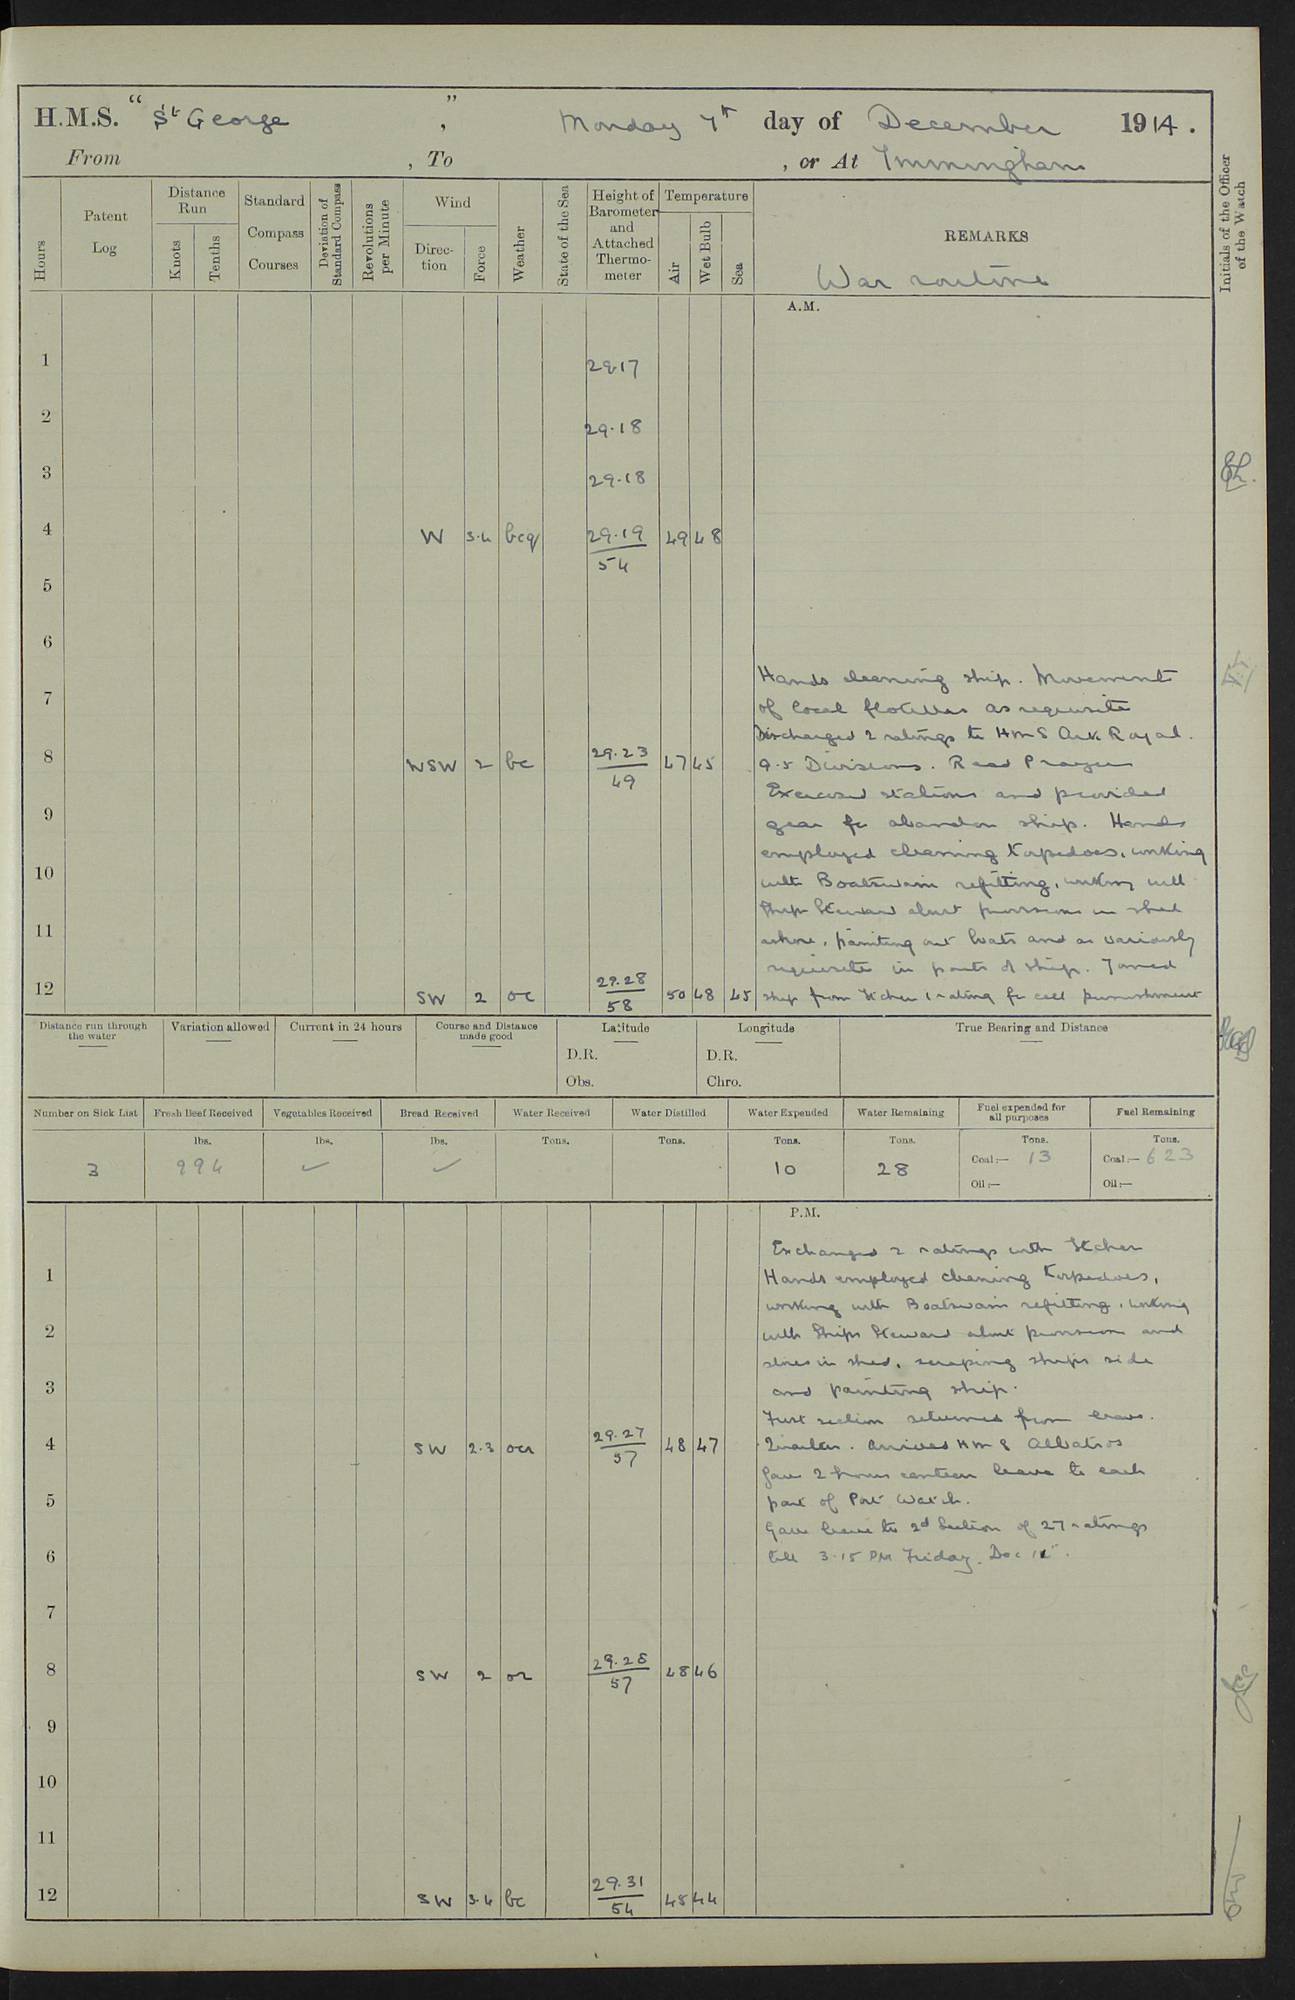 H.M.S. "St George", Monday 7th day of December 1914.
From , To , or At Immingham
Hours
Patent Log
Distance Run
Knots
Tenths
Standard Compass Courses
Deviation of Standard Compass
Revolutions per Minute
Wind
Direction
Force
Weather
State of the Sea
Height of Barometer and Attached Thermometer
Temperature
Air
Wet Bulb
Sea
REMARKS
War routine
Initials of the Officer of the Watch
A.M.
1 29.17
2 29.18
3 29.18
4 W 3.4 bcq 29.19 54 49 48
5
6
Hands cleaning ship. Movements
7
of local flotillas as requisite
Discharged 2 ratings to HMS Ark Royal.
8 WSW 2 bc 29.23 49 47 45
9.5 Divisions. Read Prayers
Exercised stations and provided
9
gear for abandon ship. Hands
employed cleaning torpedoes, working
10
with Boatswain refitting, working with
Ships Steward about provisions in shed
11
ashore, painting out boats and as variously
requisite in parts of ship. Joined
12 SW 2 oc 29.28 58 50 48 45
ship from Itchen 1 rating for cell punishment
Distance run through the water
Variation allowed
Current in 24 hours
Course and Distance made good
Latitude
D.R.
Obs.
Longitude
D.R.
Chro.
True Bearing and Distance
Number on Sick List
Fresh Beef Received
Vegetables Received
Bread Received
Water Received
Water Distilled
Water Expended
Water Remaining
Fuel expended for all purposes
Fuel Remaining
lbs. lbs. lbs. Tons. Tons. Tons. Tons. Tons. Tons.
3 994 ✓ ✓ 10 28 Coal:— 13 Coal:— 623
Oil:— Oil:—
P.M.
Exchanged 2 ratings with Itchen
1
Hands employed cleaning torpedoes,
working with Boatswain refitting, working
2
with Ships Steward about provision and
stores in shed, scraping ships side
3
and painting ship.
First section returned from leave.
4 SW 2.3 29.27 57 48 47
Quarters. Arrived HMS Albatros
Gave 2 hours canteen leave to each
5
part of Port Watch.
Gave leave to 2d Section of 27 ratings
6
till 3.15 PM Friday. Dec 11th.
7
8 SW 2 or 29.28 57 48 46
9
10
11
12 SW 3.4 bc 29.31 54 45 44